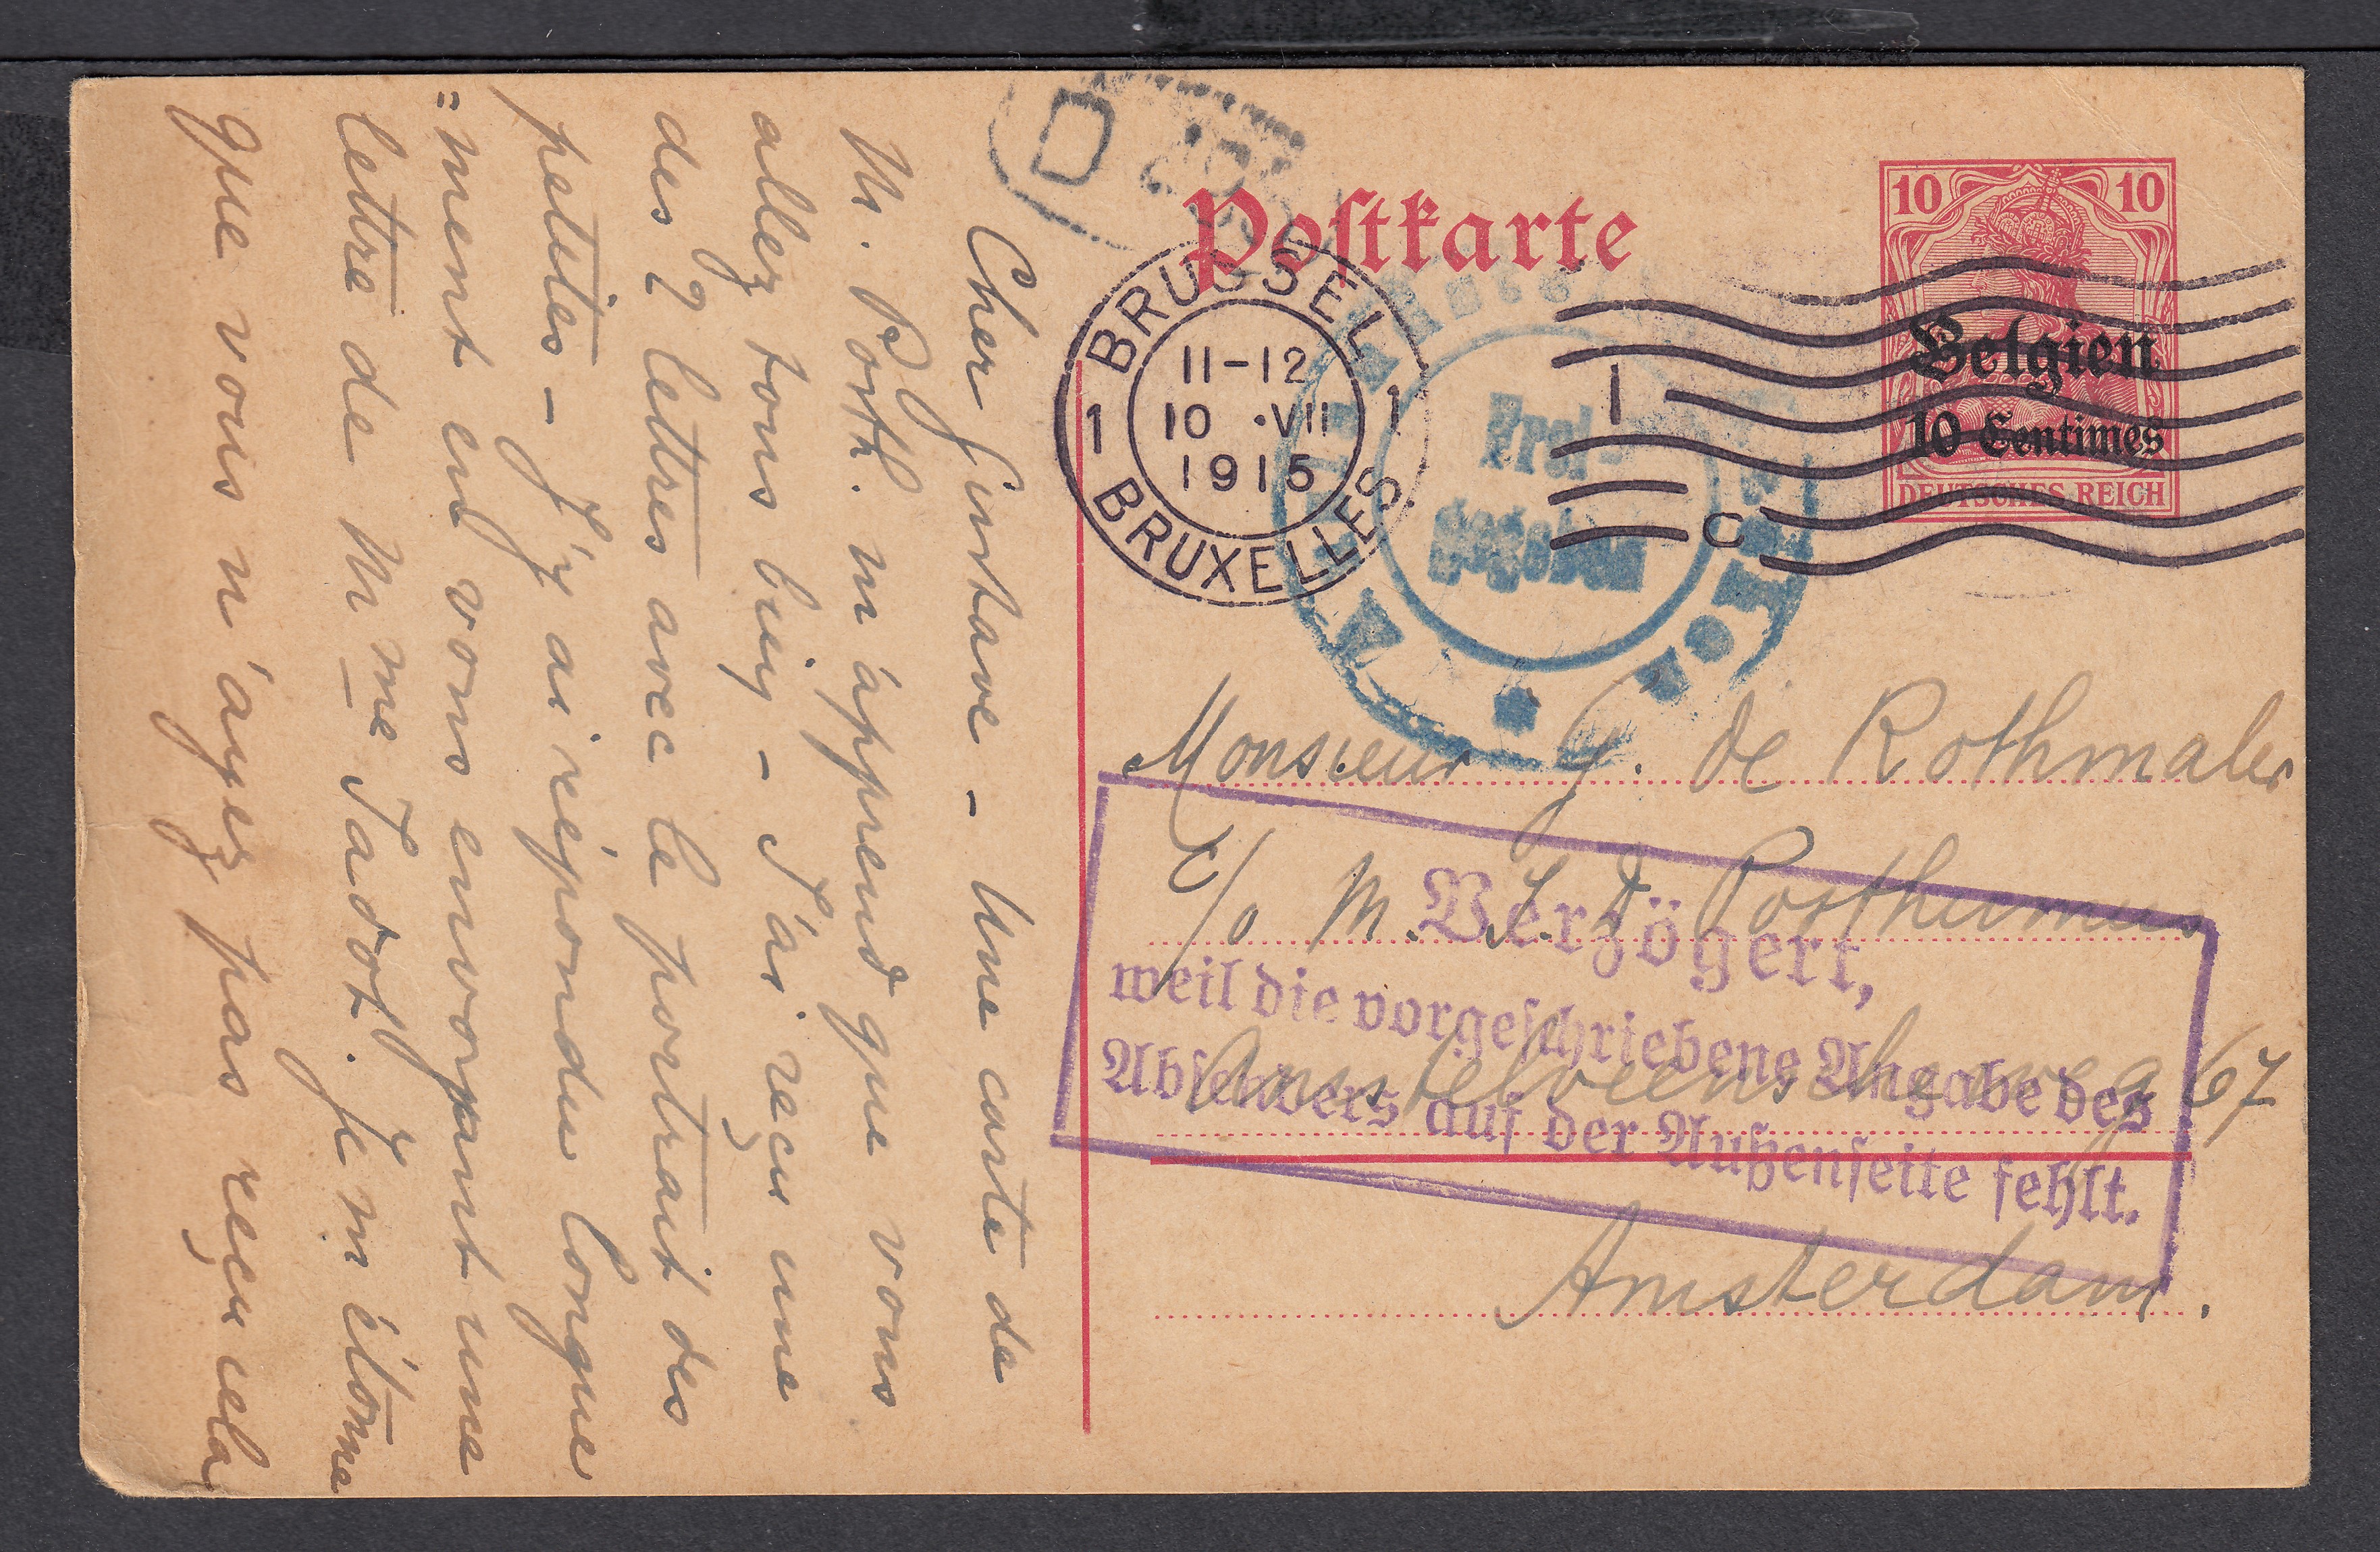 Cher Gustave - Une carte de
M. Posth. m'apprend que vous
allez tous bien - J'ai reçu une
des 2 lettres avec le portrait des
petites - J'y ai répondu longue
=ment en vous envoyant une
lettre de Mme Tadot. Je m'étonne
que vous n'ayez pas reçu cela
Postkarte
10 10
Belgien
10 Centimes
DEUTSCHES REICH
BRUSSEL
11-12
1 10 ·VII 1
1915
BRUXELLES
1
C
D
Frei
gegeben
Monsieur G. de Rothmaler
c/o M. S. D. Posthumus
Amstelveenscheweg 67
Amsterdam.
Verzögert,
weil die vorgeschriebene Angabe des
Absenders auf der Außenseite fehlt.